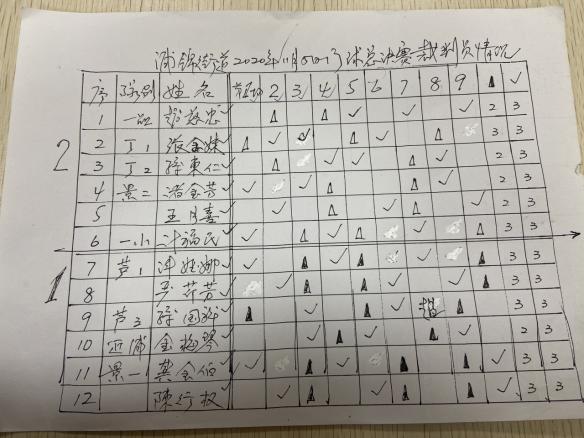 浦锦街道2020年11月5日门球总决赛裁判员情况
序 队别 姓名 2 3 4 5 6 7 8 9 ▲ ✓
2
1 一品 忠 ✓ △ △ ✓ ✓ ✓ 2 3
2 丁1 张金妹 ✓ △ ✓ ✓ △ ✓ △ 3 3
3 丁2 孙东仁 ✓ △ △ ✓ ✓ △ ✓ 2 3
4 景二 诸金芳 ✓ ✓ ✓ △ ✓ △ 2 3
5 王月喜 ✓ ✓ △ △ ✓ 2 3
6 一小 计福民 ✓ ✓ △ ✓ △ ✓ ✓ △ 3 3
1
7 芦1 ✓ ✓ ▲ ✓ ▲ ✓ ▲ 3 3
8 芳 ✓ ✓ ▲ ✓ ▲ ✓ ▲ 3 3
9 芦3 孙国 ✓ ▲ ✓ ▲ ✓ 赵 ▲ 3 3
10 浦 金梅琴 ✓ ✓ ▲ ✓ ▲ ✓ 2 3
11 景一 龚全伯 ✓ ✓ ▲ ✓ ▲ ▲ ✓ 3 3
12 陈行权 ✓ ✓ ▲ ✓ ▲ ▲ ✓ 3 3